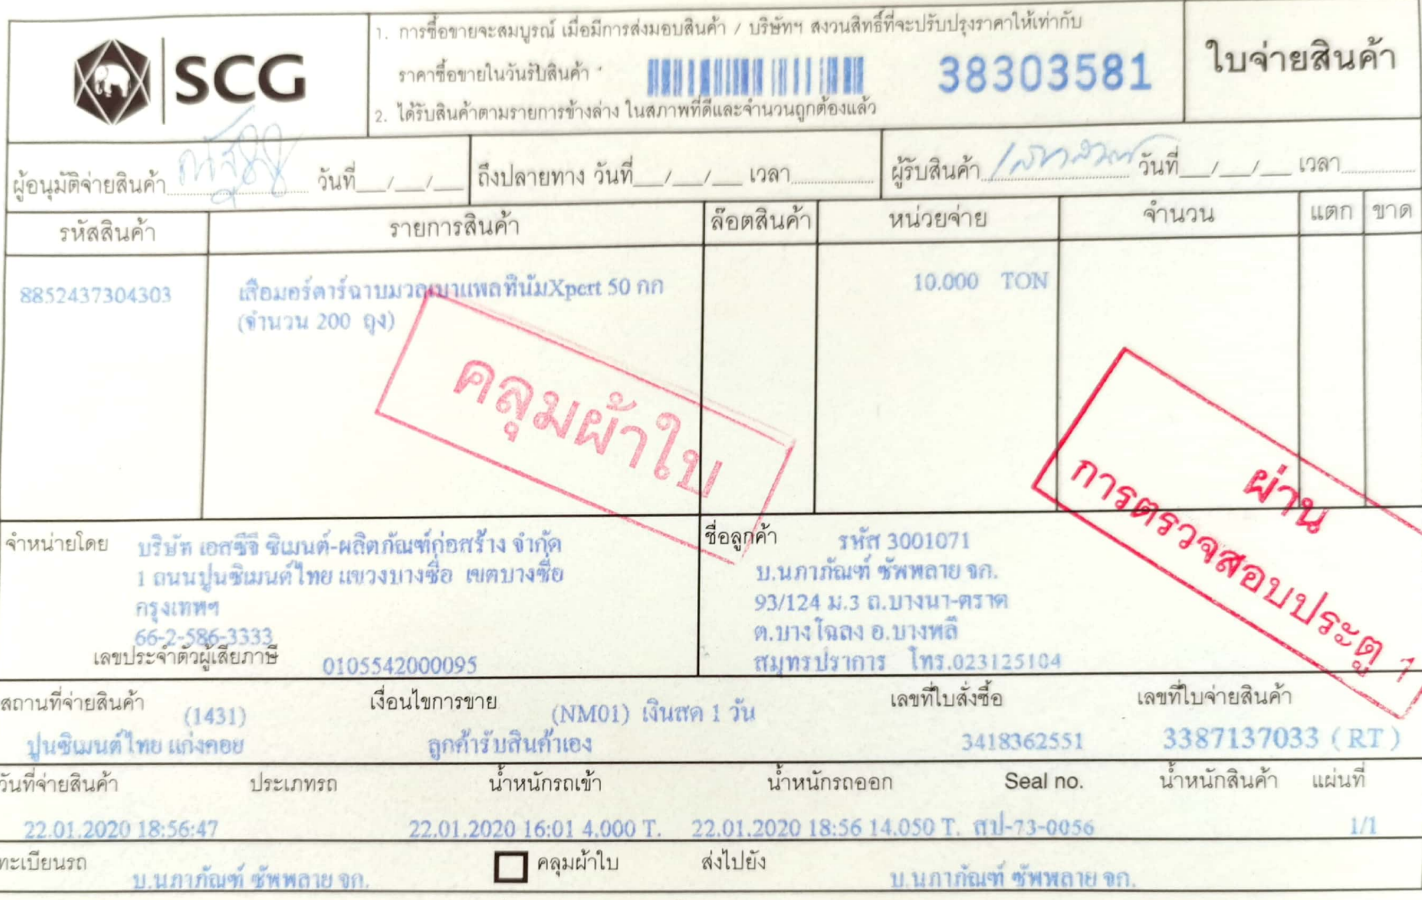 SCG
1. การซื้อขายจะสมบูรณ์ เมื่อมีการส่งมอบสินค้า / บริษัทฯ สงวนสิทธิ์ที่จะปรับปรุงราคาให้เท่ากับ
ราคาซื้อขายในวันรับสินค้า
38303581
2. ได้รับสินค้าตามรายการข้างล่าง ในสภาพที่ดีและจำนวนถูกต้องแล้ว
ใบจ่ายสินค้า
ผู้อนุมัติจ่ายสินค้า วันที่__/__/__ ถึงปลายทาง วันที่__/__/__ เวลา ผู้รับสินค้า วันที่__/__/__ เวลา
รหัสสินค้า รายการสินค้า ล๊อตสินค้า หน่วยจ่าย จำนวน แตก ขาด
8852437304303 เสือมอร์ตาร์ฉาบมวลเบาแพลทินัมXpert 50 กก 10.000 TON
(จำนวน 200 ถุง)
คลุมผ้าใบ
ผ่าน
การตรวจสอบประตู 1
จำหน่ายโดย บริษัท เอสซีจี ซิเมนต์-ผลิตภัณฑ์ก่อสร้าง จำกัด
1 ถนนปูนซิเมนต์ไทย แขวงบางซื่อ เขตบางซื่อ
กรุงเทพฯ
66-2-586-3333
เลขประจำตัวผู้เสียภาษี 0105542000095
ชื่อลูกค้า รหัส 3001071
บ.นภาภัณฑ์ ซัพพลาย จก.
93/124 ม.3 ถ.บางนา-ตราด
ต.บางโฉลง อ.บางพลี
สมุทรปราการ โทร.023125104
สถานที่จ่ายสินค้า (1431) เงื่อนไขการขาย (NM01) เงินสด 1 วัน เลขที่ใบสั่งซื้อ เลขที่ใบจ่ายสินค้า
ปูนซิเมนต์ไทย แก่งคอย ลูกค้ารับสินค้าเอง 3418362551 3387137033 ( RT )
วันที่จ่ายสินค้า ประเภทรถ น้ำหนักรถเข้า น้ำหนักรถออก Seal no. น้ำหนักสินค้า แผ่นที่
22.01.2020 18:56:47 22.01.2020 16:01 4.000 T. 22.01.2020 18:56 14.050 T. สป-73-0056 1/1
ทะเบียนรถ บ.นภาภัณฑ์ ซัพพลาย จก. คลุมผ้าใบ ส่งไปยัง บ.นภาภัณฑ์ ซัพพลาย จก.